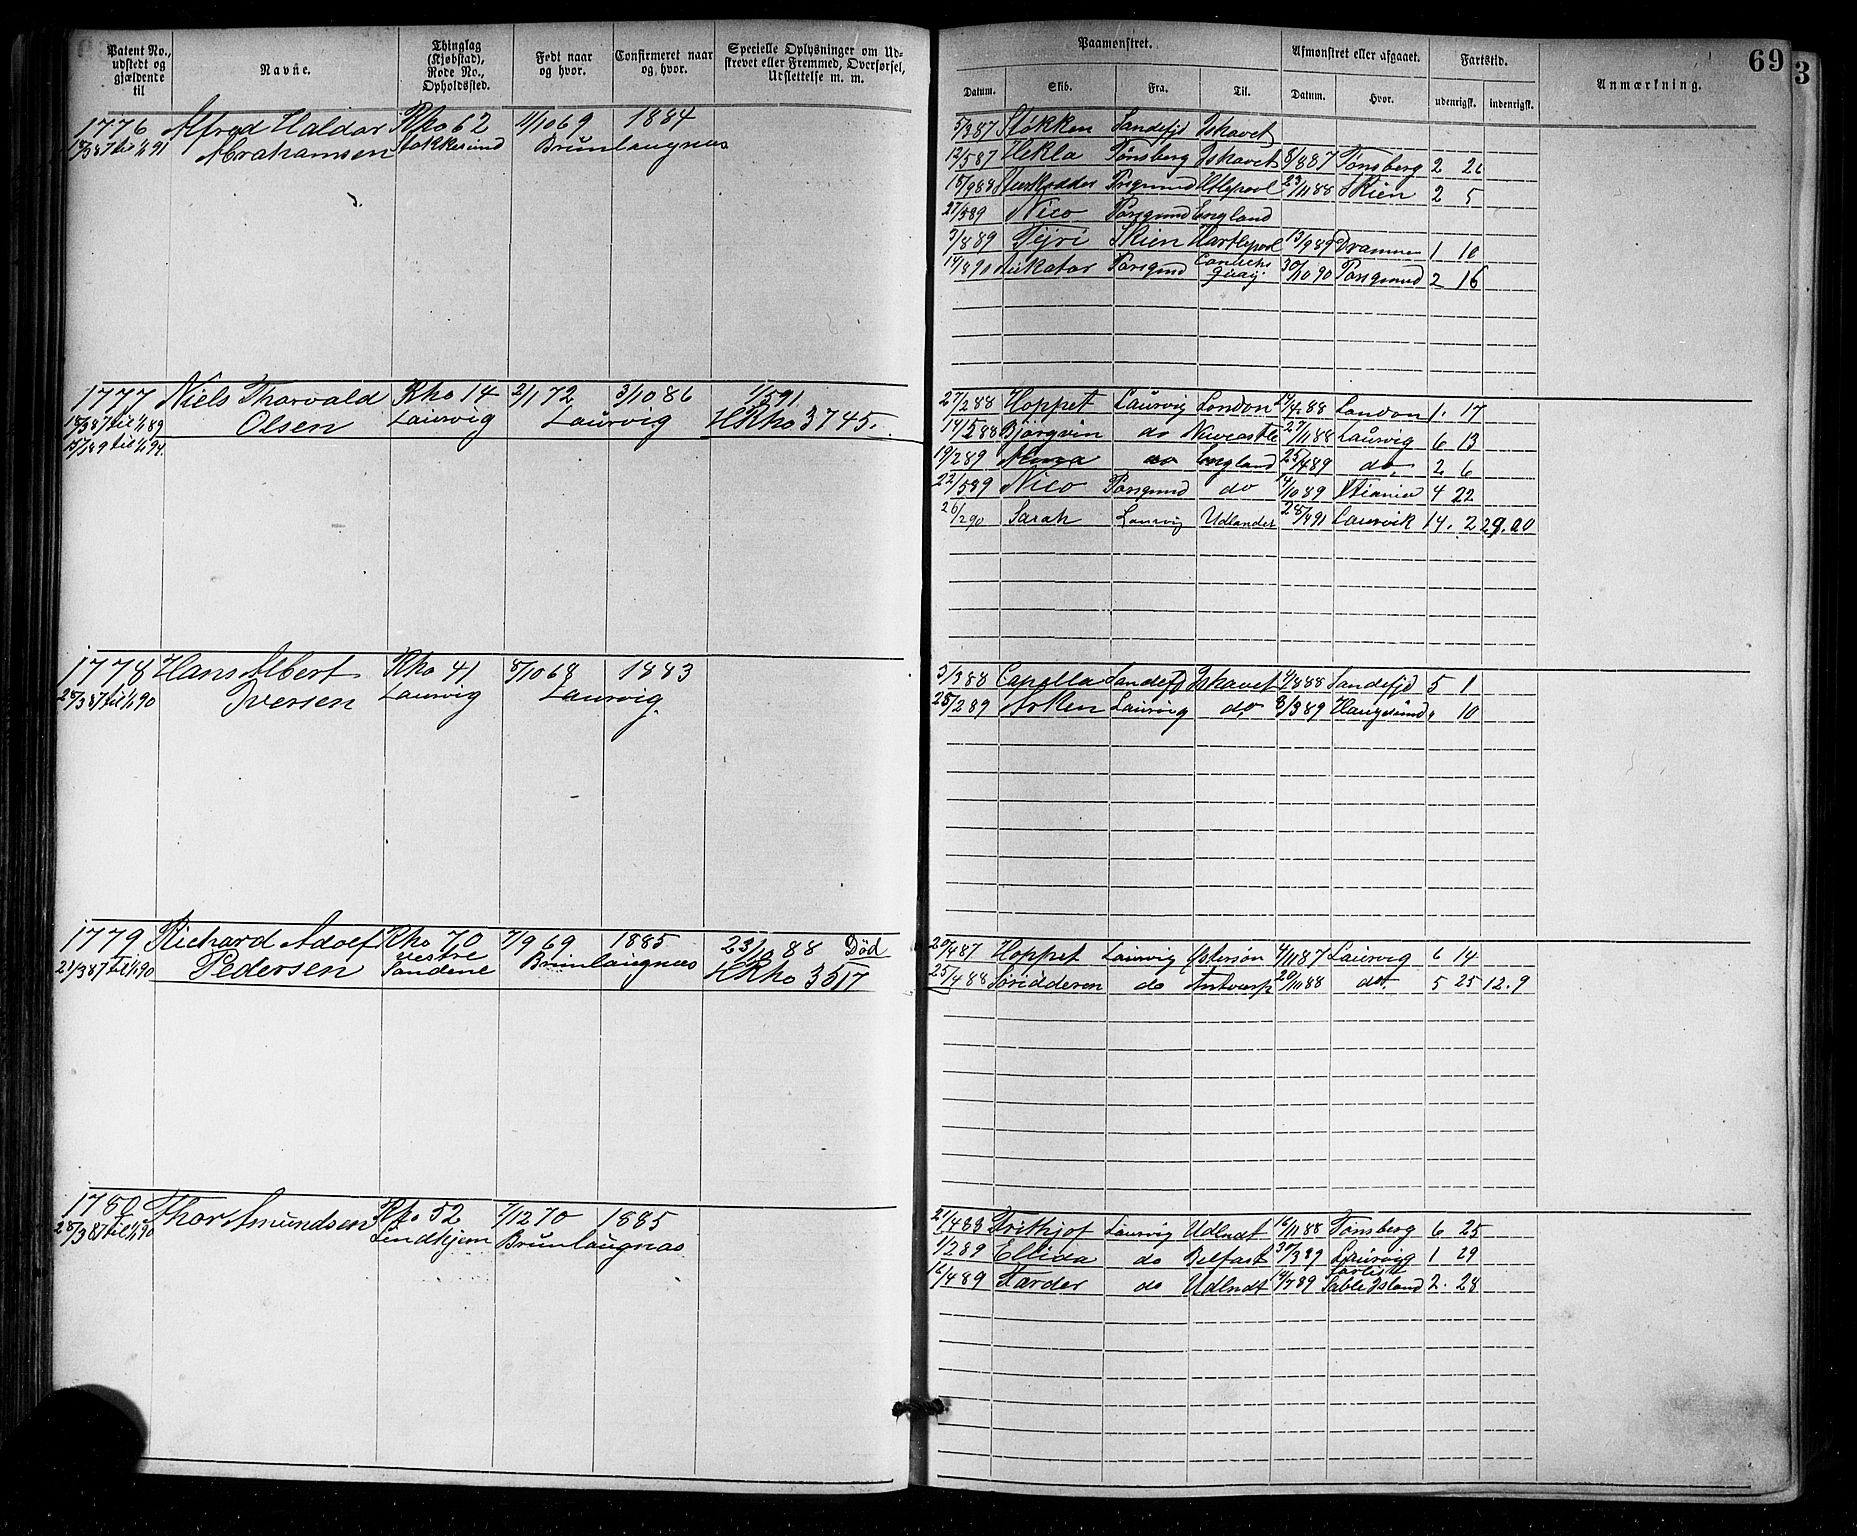 Patent No., udstedt og gjældende til
Navne.
Thinglag (Kjøbstad), Rode No., Opholdssted.
Født naar og hvor.
Confirmeret naar og hvor.
Specielle Oplysninger om Udstrevet eller Fremmed, Overførsel, Udslettelse m. m.
Paamønstret.
Afmønstret eller afgaaet.
Fartstid.
69
3
Datum.
Skib.
Fra.
Til.
Datum.
Hvor.
udenrigsk.
indenrigsk.
Anmærkning.
1776 Alfred Haldor Rho 62 11/10 69 1884
18/3 87 til 1/1 91 Abrahamsen Stokkesund Brunlaugnæs
5/3 87 Støkken Sandefjd Ishavet
12/5 87 Hekla Tønsberg Ishavet 8/8 87 Tønsberg 2 26
15/9 88 Porsgrund Htlepool 23/11 88 Skien 2 5
27/3 89 Nico Porsgrund England
3/8 89 Tejri Skien Hartlepool 13/9 89 Drammen 1 10
14/8 90 Porsgrund 30/10 90 Porsgrund 2 16
1777 Niels Thorvald Rho 14 2/1 72 3/10 86 1/5 91.
18/3 87 til 1/1 89 Olsen Laurvig Laurvig HRho 3745.
15/1 89 til 1/1 94.
27/2 88 Hoppet Laurvig London 14/4 88 London 1. 17
14/5 88 Bjørgvin do Newcastle 27/11 88 Laurvig 6 13
19/2 89 Anna do England 25/4 89 do. 2 6
22/5 89 Nico Porsgrund do 14/10 89 Xtiania 4 22
26/2 90 Sarah Laurvig Udlandet 28/4 91 Laurvik 14. 2 29.00
1778 Hans Albert Rho 41 8/10 68 1883
28/3 87 til 1/1 90 Iversen Laurvig Laurvig.
3/3 88 Capella Sandefjd Ishavet 4/8 88 Sandefjd 5 1
25/2 89 Arken Laurvig do. 8/3 89 Haugesund " 10
1779 Richard Adolf Rho 70 7/9 69 1885 23/10 88 Død
21/3 87 til 1/1 90 Pedersen vestre Sandene Brunlaugnæs HRho 3517
20/4 87 Hoppet Laurvig Østersøn 4/11 87 Laurvig 6 14
25/4 88 Søridderen do Antwerp 20/10 88 do. 5 25 12.9
1780 Thor Amundsen Rho 52 7/12 70 1885
28/3 87 til 1/1 90 Lindhjem Brunlaugnæs
21/4 88 Frithjof Laurvig Udlndt 16/11 88 Tønsberg 6 25
1/2 89 Ellida do Belfast 30/3 89 Laurvig 1 29
16/4 89 Færder do Udlndt 14/7 89 Forlist Sable Island 2. 28